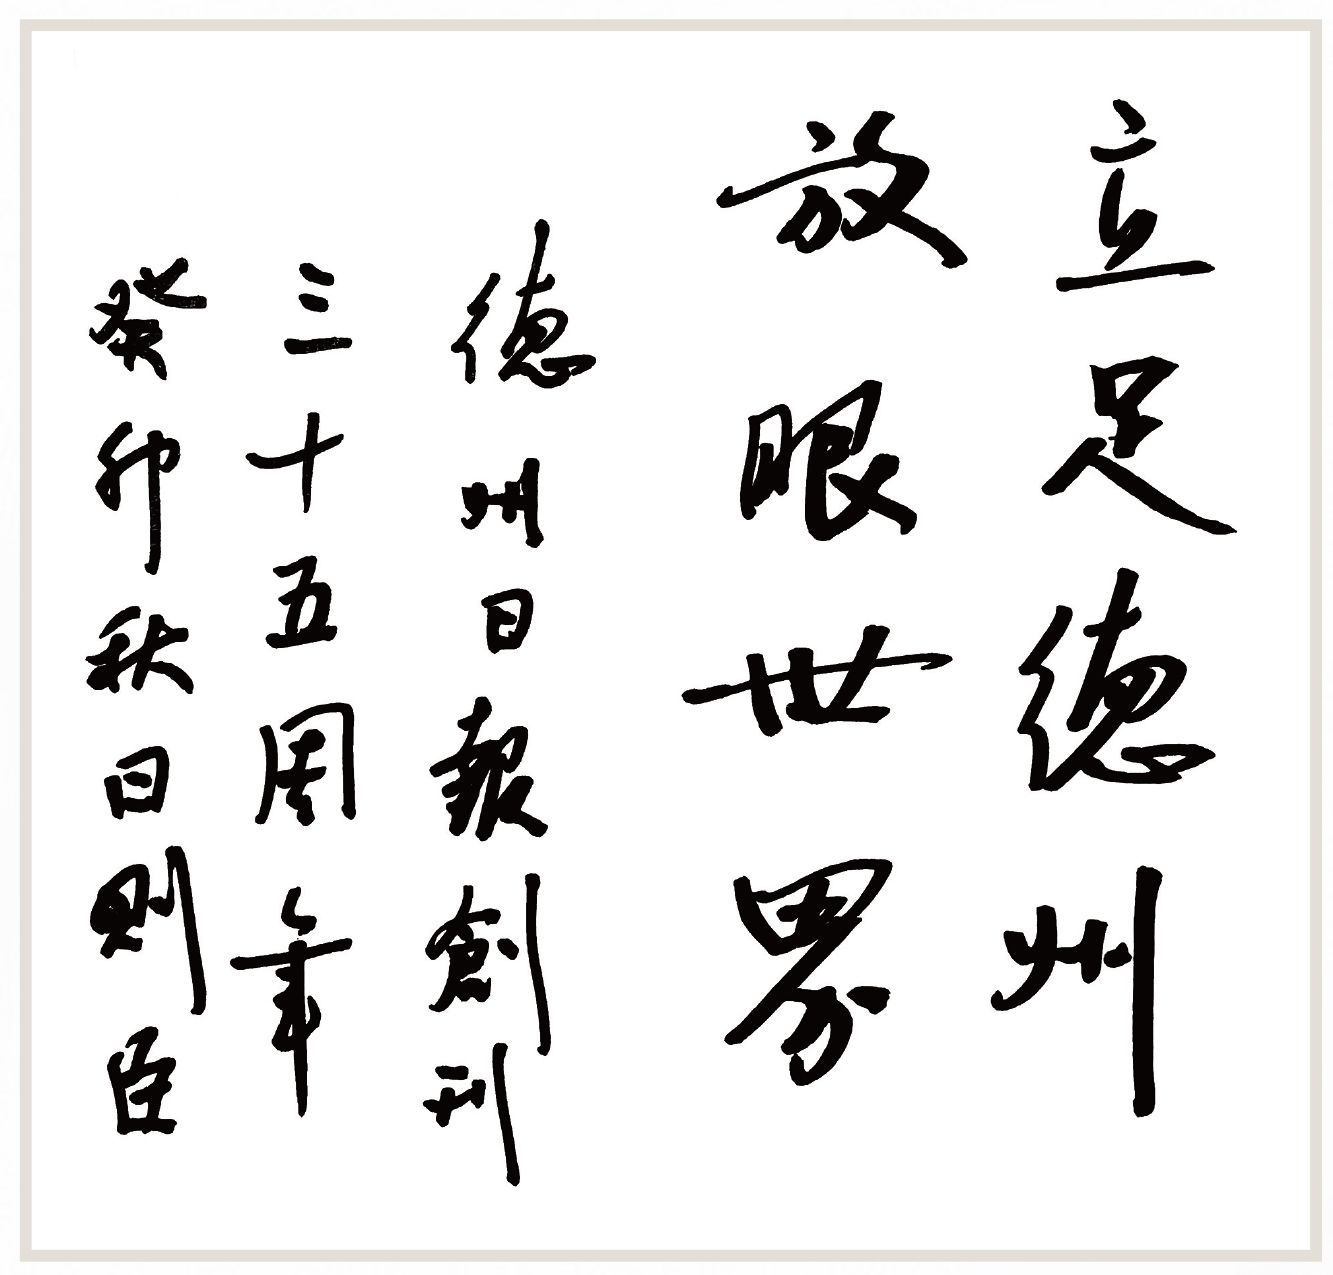 立足德州
放眼世界
德州日報創刊
三十五周年
癸卯秋日則臣